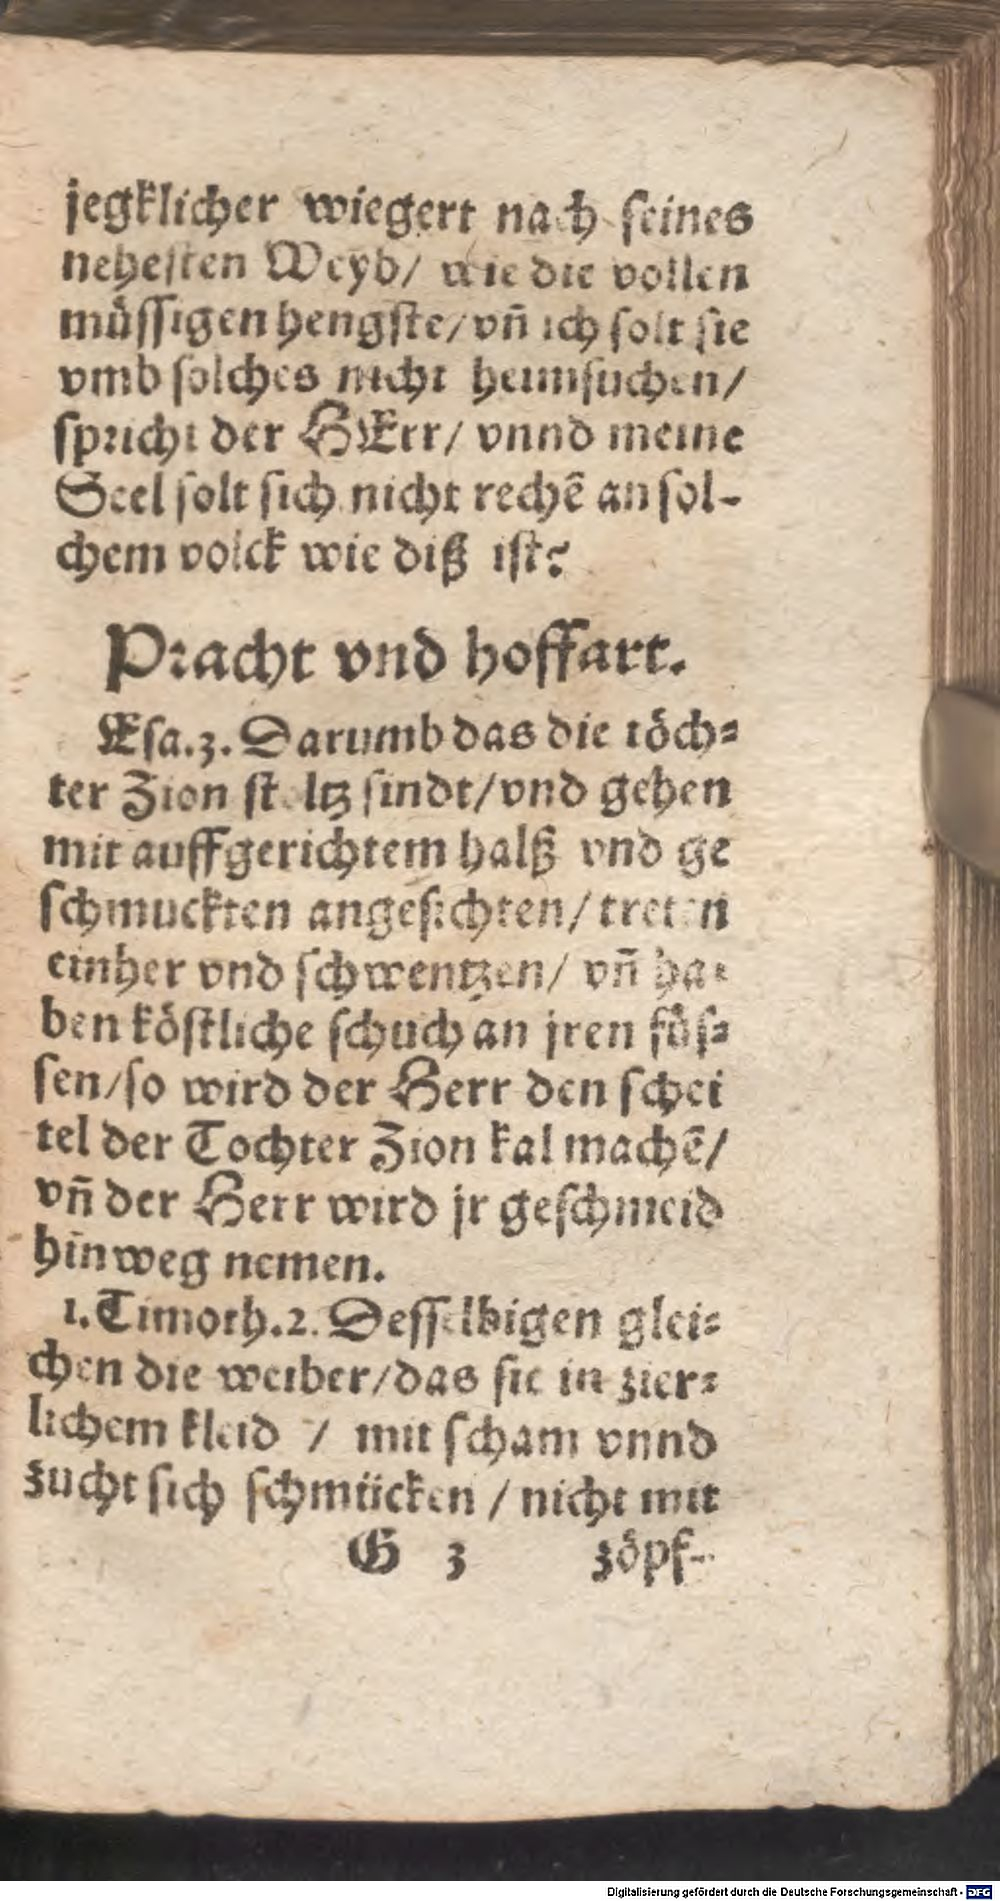 jegklicher wiegert nach seines
nehesten Weyb/ wie die vollen
müssigen hengste/ vn̄ ich solt sie
vmb solches nicht heimsuchen/
spricht der HErr/ vnnd meine
Seel solt sich nicht rechē an sol-
chem volck wie diß ist?
Pracht vnd hoffart.
Esa.3. Darumb das die töch=
ter Zion stoltz sindt/vnd gehen
mit auffgerichtem halß vnd ge
schmuckten angesichten/ treten
einher vnd schwentzen/ vn̄ ha=
ben köstliche schuch an jren füs=
sen/so wird der Herr den schei
tel der Tochter Zion kal machē/
vn̄ der Herr wird jr geschmeid
hinweg nemen.
1.Timoth.2. Desselbigen glei=
chen die weiber/das sie in zier=
lichem kleid / mit scham vnnd
zucht sich schmücken / nicht mit
G 3 zöpf-
Digitalisierung gefördert durch die Deutsche Forschungsgemeinschaft - DFG